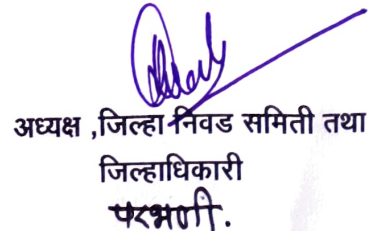 अध्यक्ष ,जिल्हा निवड समिती तथा
जिल्हाधिकारी
परभणी.